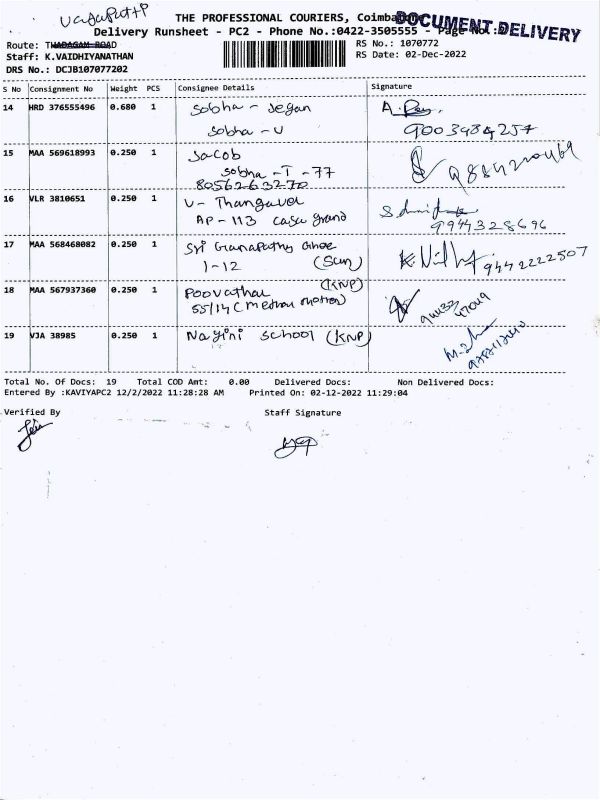 vadapatti
THE PROFESSIONAL COURIERS, Coimba
DOCUMENT DELIVERY
Delivery Runsheet - PC2 - Phone No.:0422-3505555 - Page No.:
Route: THADAGAM ROAD
RS No.: 1070772
Staff: K.VAIDHIYANATHAN
RS Date: 02-Dec-2022
DRS No.: DCJB107077202
S No Consignment No Weight PCS Consignee Details Signature
14 HRD 376555496 0.680 1 Sobha - Jegan
Sobha - U
9003484257
15 MAA 569618993 0.250 1 Jacob
Sobha - T - 77
8056263270
16 VLR 3810651 0.250 1 V - Thangavel
AP - 113 casa grand
9944328696
17 MAA 568468082 0.250 1 Sri Ganapathy Ghee
1-12 (Sun)
9442222507
18 MAA 567937360 0.250 1 Poovathal (KNP)
55/14
19 VJA 38985 0.250 1 Nagini School (KNP)
Total No. Of Docs: 19 Total COD Amt: 0.00 Delivered Docs: Non Delivered Docs:
Entered By :KAVIYAPC2 12/2/2022 11:28:28 AM Printed On: 02-12-2022 11:29:04
Verified By Staff Signature